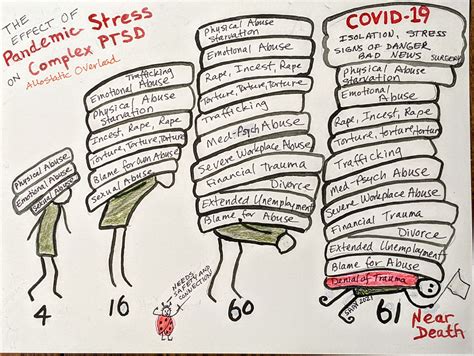 THE
EFFECT OF
Pandemic Stress
ON Complex PTSD
Allostatic Overload
Physical Abuse
Emotional Abuse
Sexual Abuse
4
Trafficking
Emotional Abuse
Physical Abuse
Starvation
Incest, Rape, Rape
Torture, Torture, Torture
Blame for Own Abuse
Sexual Abuse
16
NEEDS
SAFETY AND
CONNECTION
Physical Abuse
Starvation
Emotional Abuse
Rape, Incest, Rape
Torture, Torture, Torture
Trafficking
Med-Psych Abuse
Severe Workplace Abuse
Financial Trauma
Divorce
Extended Unemployment
Blame for Abuse
60
COVID-19
ISOLATION, STRESS
SIGNS OF DANGER
BAD NEWS SURGERY
Physical Abuse
Starvation
Emotional
Abuse
Rape, Incest, Rape
Torture, Torture, Torture
Trafficking
Med-Psych Abuse
Severe Workplace Abuse
Financial Trauma
Divorce
Extended Unemployment
Blame for Abuse
Denial of Trauma
2021
61 Near
Death